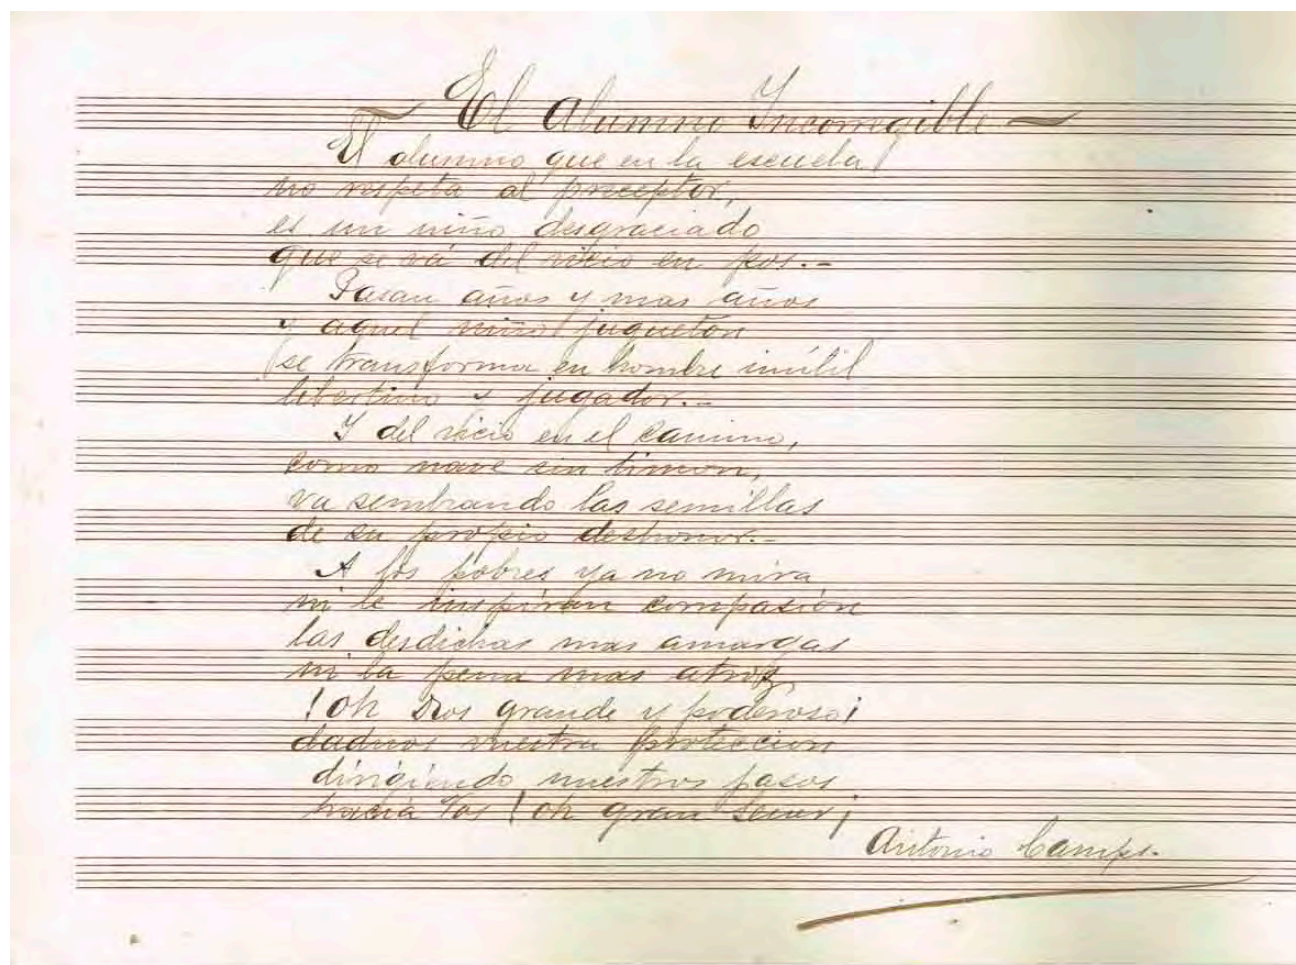 El Alumno Incorregible
El alumno que en la escuela
no respeta al preceptor,
es un niño desgraciado
que se vá del vicio en pos.-
Pasan años y mas años
y aquel niño juguetón
se transforma en hombre inútil
libertino y jugador.-
Y del vicio en el camino,
como nave sin timon,
va sembrando las semillas
de su propio deshonor.-
A los pobres ya no mira
ni le inspiran compasión
las desdichas mas amargas
ni la pena mas atroz,
!oh Dios grande y poderoso¡
dadnos vuestra proteccion
dirigiendo nuestros pasos
hacia Vos !oh gran Señor¡
Antonio Camps.